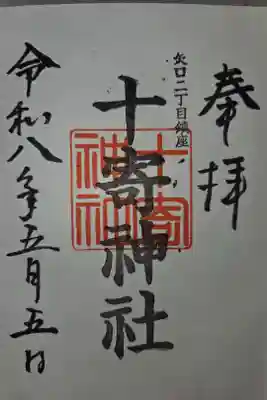 奉拝
矢口二丁目鎮座
十寄神社
十寄神社
令和八年五月五日